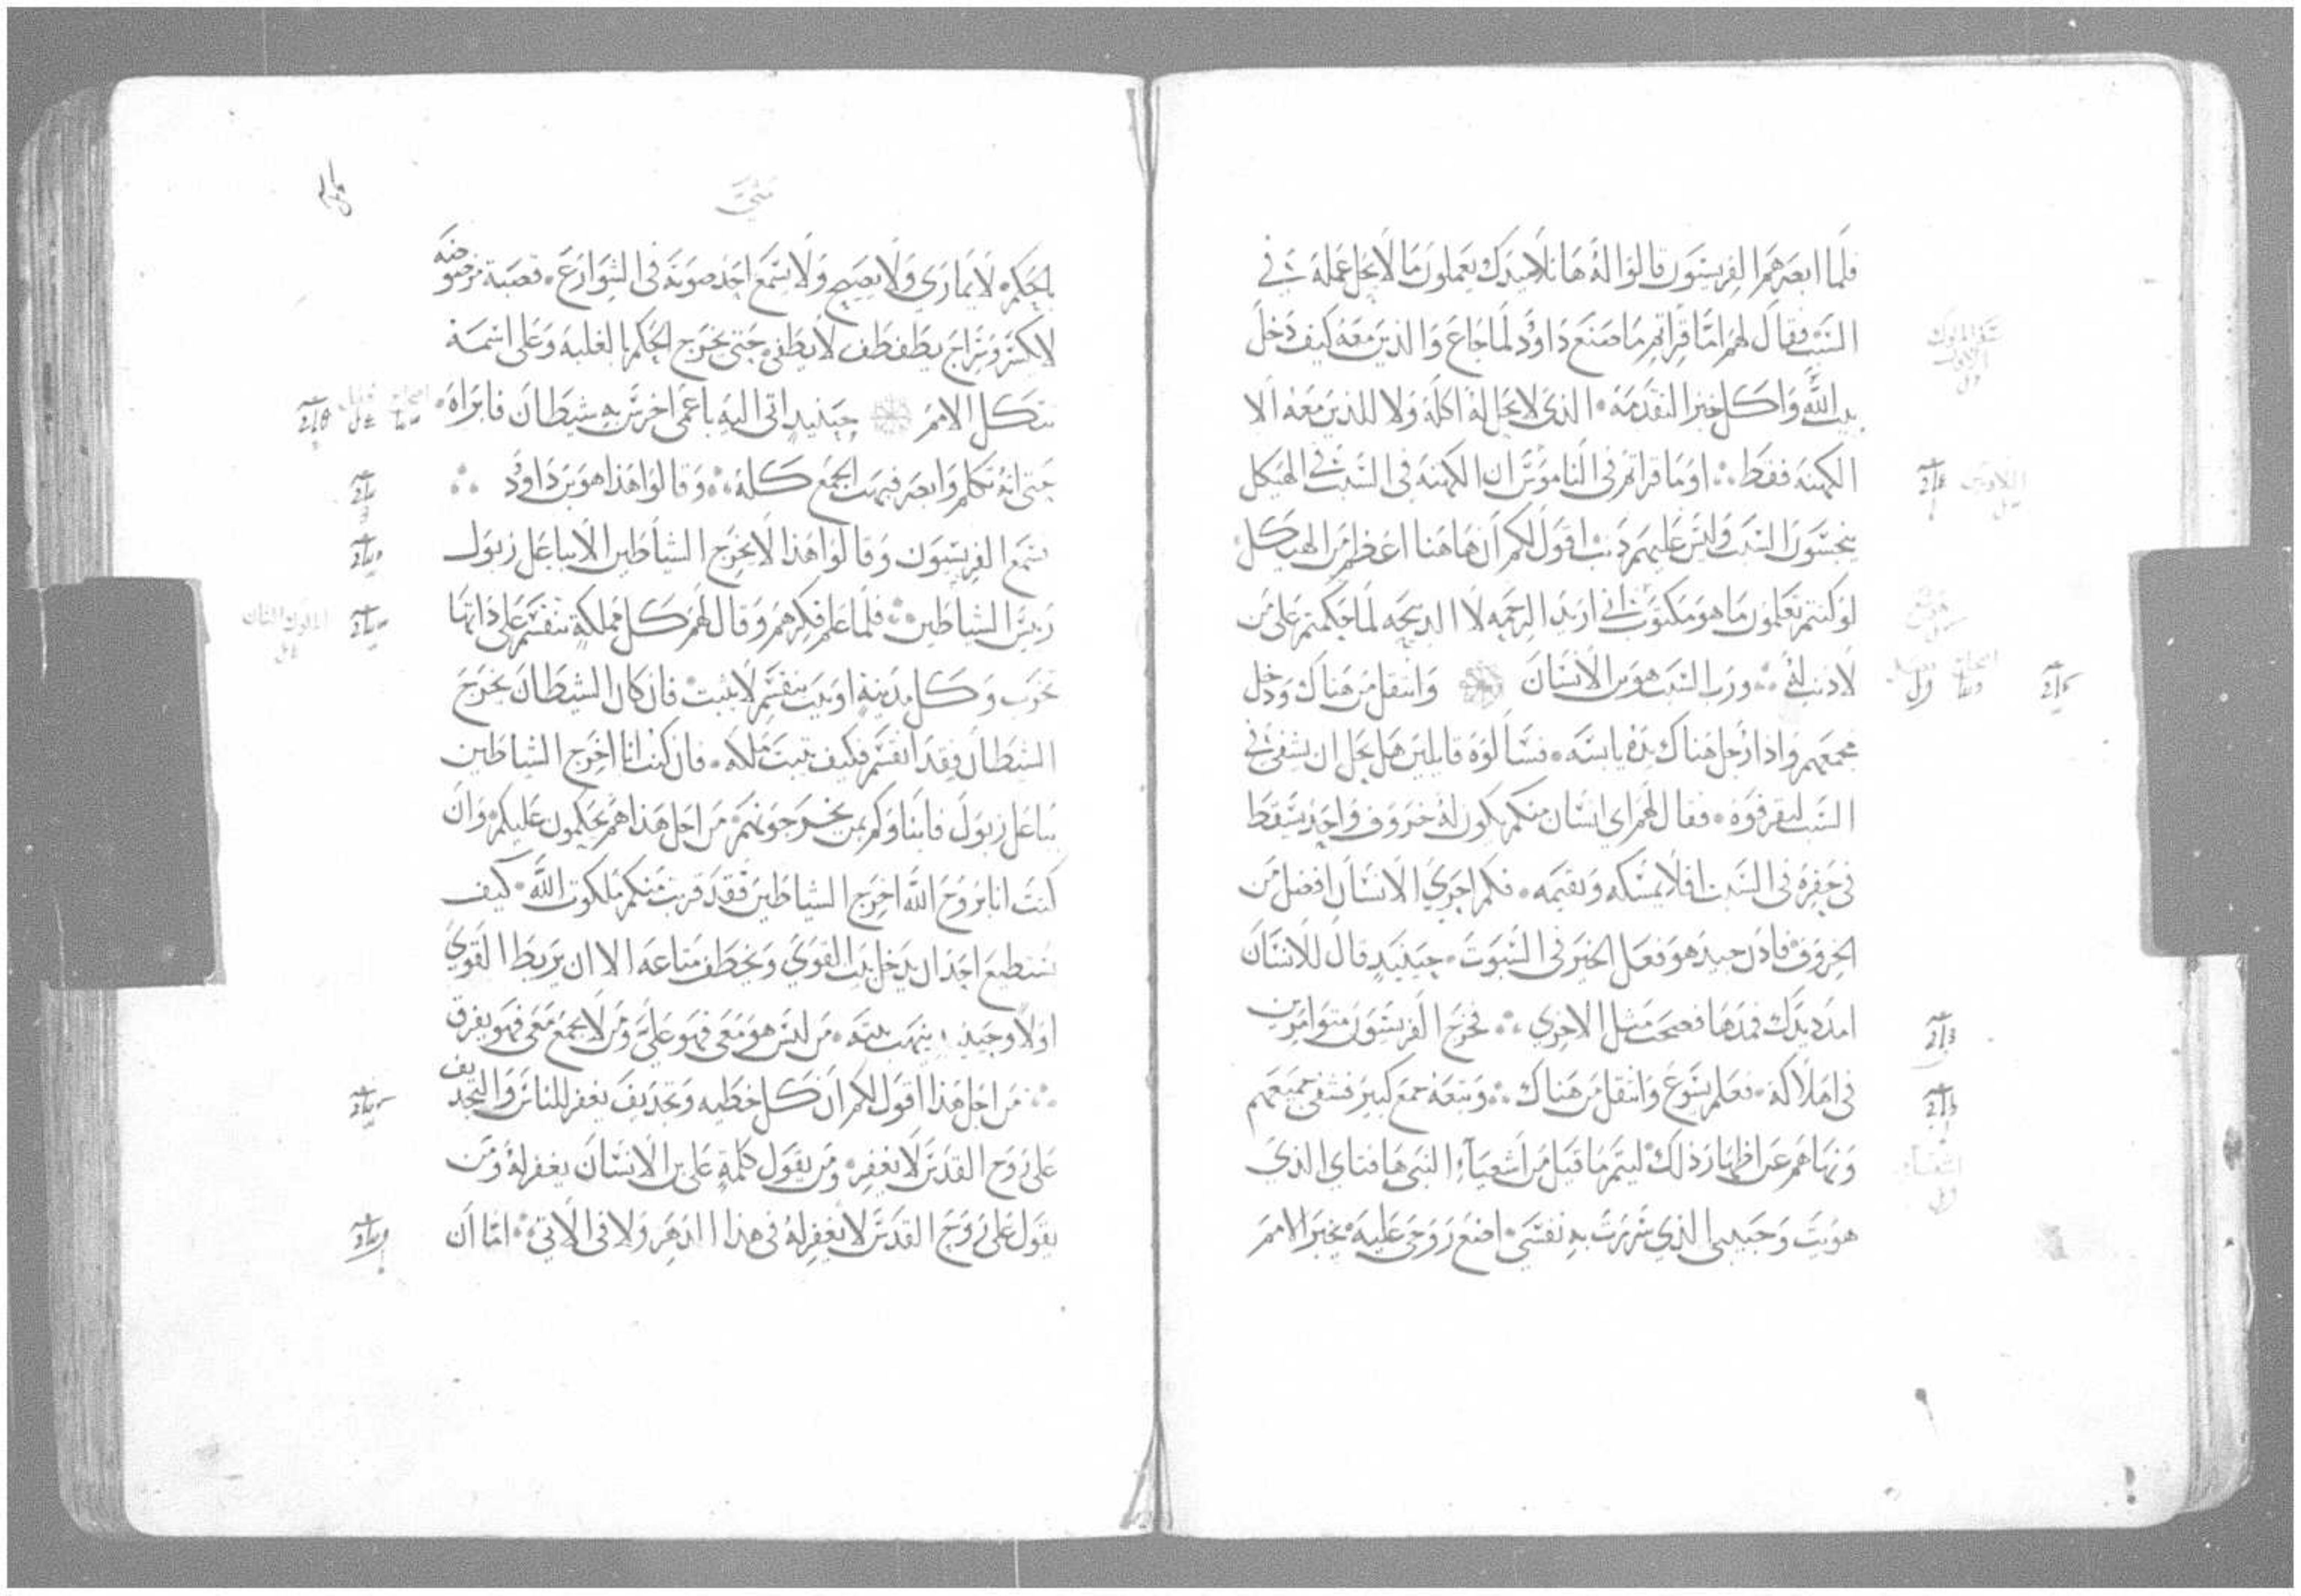 فلما ابصرهم الفريسيون قالوا له هاتلاميدك يعملون ما لا يحل عمله في
السبت فقال لهم اما قراتم ما صنع داوود لما جاع والذين معه كيف دخل
بيت الله واكل خبز التقدمة الذي لا يحل له اكله ولا للذين معه الا
الكهنه فقط اوما قراتم في الناموس ان الكهنه في السبت في الهيكل
ينجسون السبت وليس عليهم ذنب اقول لكم ان هاهنا اعظم من الهيكل
لو كنتم تعلمون ما هو مكتوب اني اريد الرحمه لا الدبيحه لما حكمتم على من
لا ذنب له ورب السبت هو بن الانسان وانتقل من هناك ودخل
مجمعهم واذا رجل هناك يده يابسه فسالوه قايلين هل يحل ان يشفي في
السبت ليقرفوه فقال لهم اي انسان منكم يكون له خروف واحد يسقط
في حفره في السبت افلا يمسكه ويقيمه فكم احرى الانسان افضل من
الخروف فاذن جيد هو فعل الخير في السبوت حينيد قال للانسان
امدد يدك فمدها فصحت مثل الاخرى فخرج الفريسيون متوامرين
في اهلاكه فعلم يسوع وانتقل من هناك وتبعه جمع كبير فشفى جميعهم
ونهاهم عن اظهار ذلك ليتم ما قيل من اشعياء النبي ها فتاي الذي
هويت وحبيبي الذي سررت به نفسي اضع روحي عليه يخبر الامم
سفر الملوك
الاول
اللاويين
هوشع
اشعياء
متى
بالحكم لا يماري ولا يصيح ولا يسمع احد صوته في الشوارع قصبة مرضوضه
لا يكسر وسراج يطفطف لا يطفي حتى يخرج الحكم بالغلبه وعلى اسمه
تتكل الامم حينيد اتي اليه باعمى اخرس به شيطان فابراه
حتى انه تكلم وابصر فبهت الجمع كله وقالوا هذا هو بن داوود
سمع الفريسيون وقالوا هذا لا يخرج الشياطين الا بباعل زبول
رييس الشياطين فلما علم فكرهم وقال لهم كل مملكة تنقسم على ذاتها
تخرب وكل مدينة او بيت ينقسم لا يثبت فان كان الشيطان يخرج
الشيطان فقد انقسم فكيف تثبت ملكه فان كنت انا اخرج الشياطين
بباعل زبول فابناوكم بمن يخرجونهم من اجل هذا هم يحكمون عليكم وان
كنت انا بروح الله اخرج الشياطين فقد قربت منكم ملكوت الله كيف
يستطيع احد ان يدخل بيت القوي ويخطف متاعه الا ان يربط القوي
اولا وحينيد ينهب بيته من ليس هو معي فهو علي ومن لا يجمع معي فهو يفرق
من اجل هذا اقول لكم ان كل خطيه وتجديف يغفر للناس والتجديف
على روح القدس لا يغفر ومن يقول كلمة على بن الانسان يغفر له ومن
يقول على روح القدس لا يغفر له في هذا الدهر ولا في الاتي اما ان